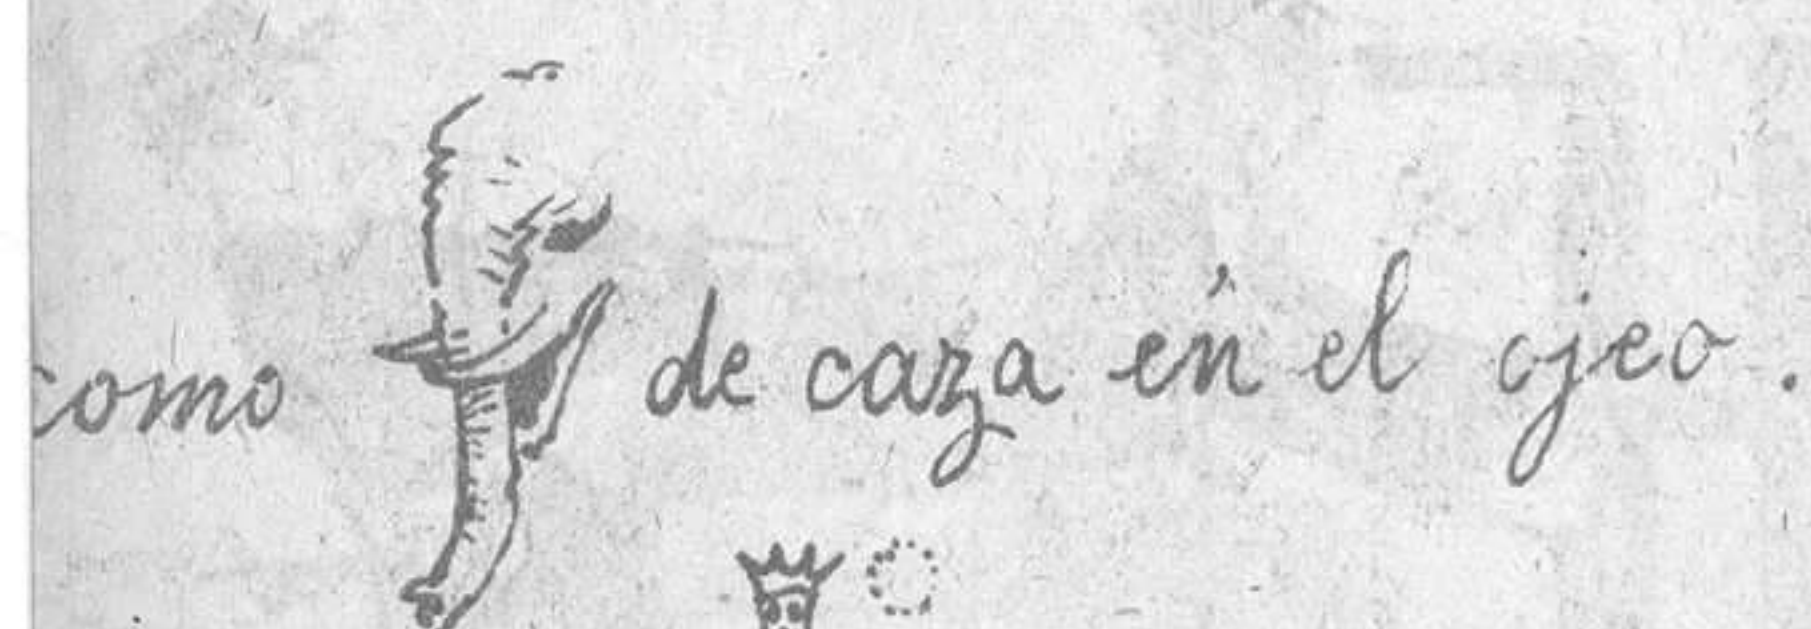 como de caza en el ojeo.